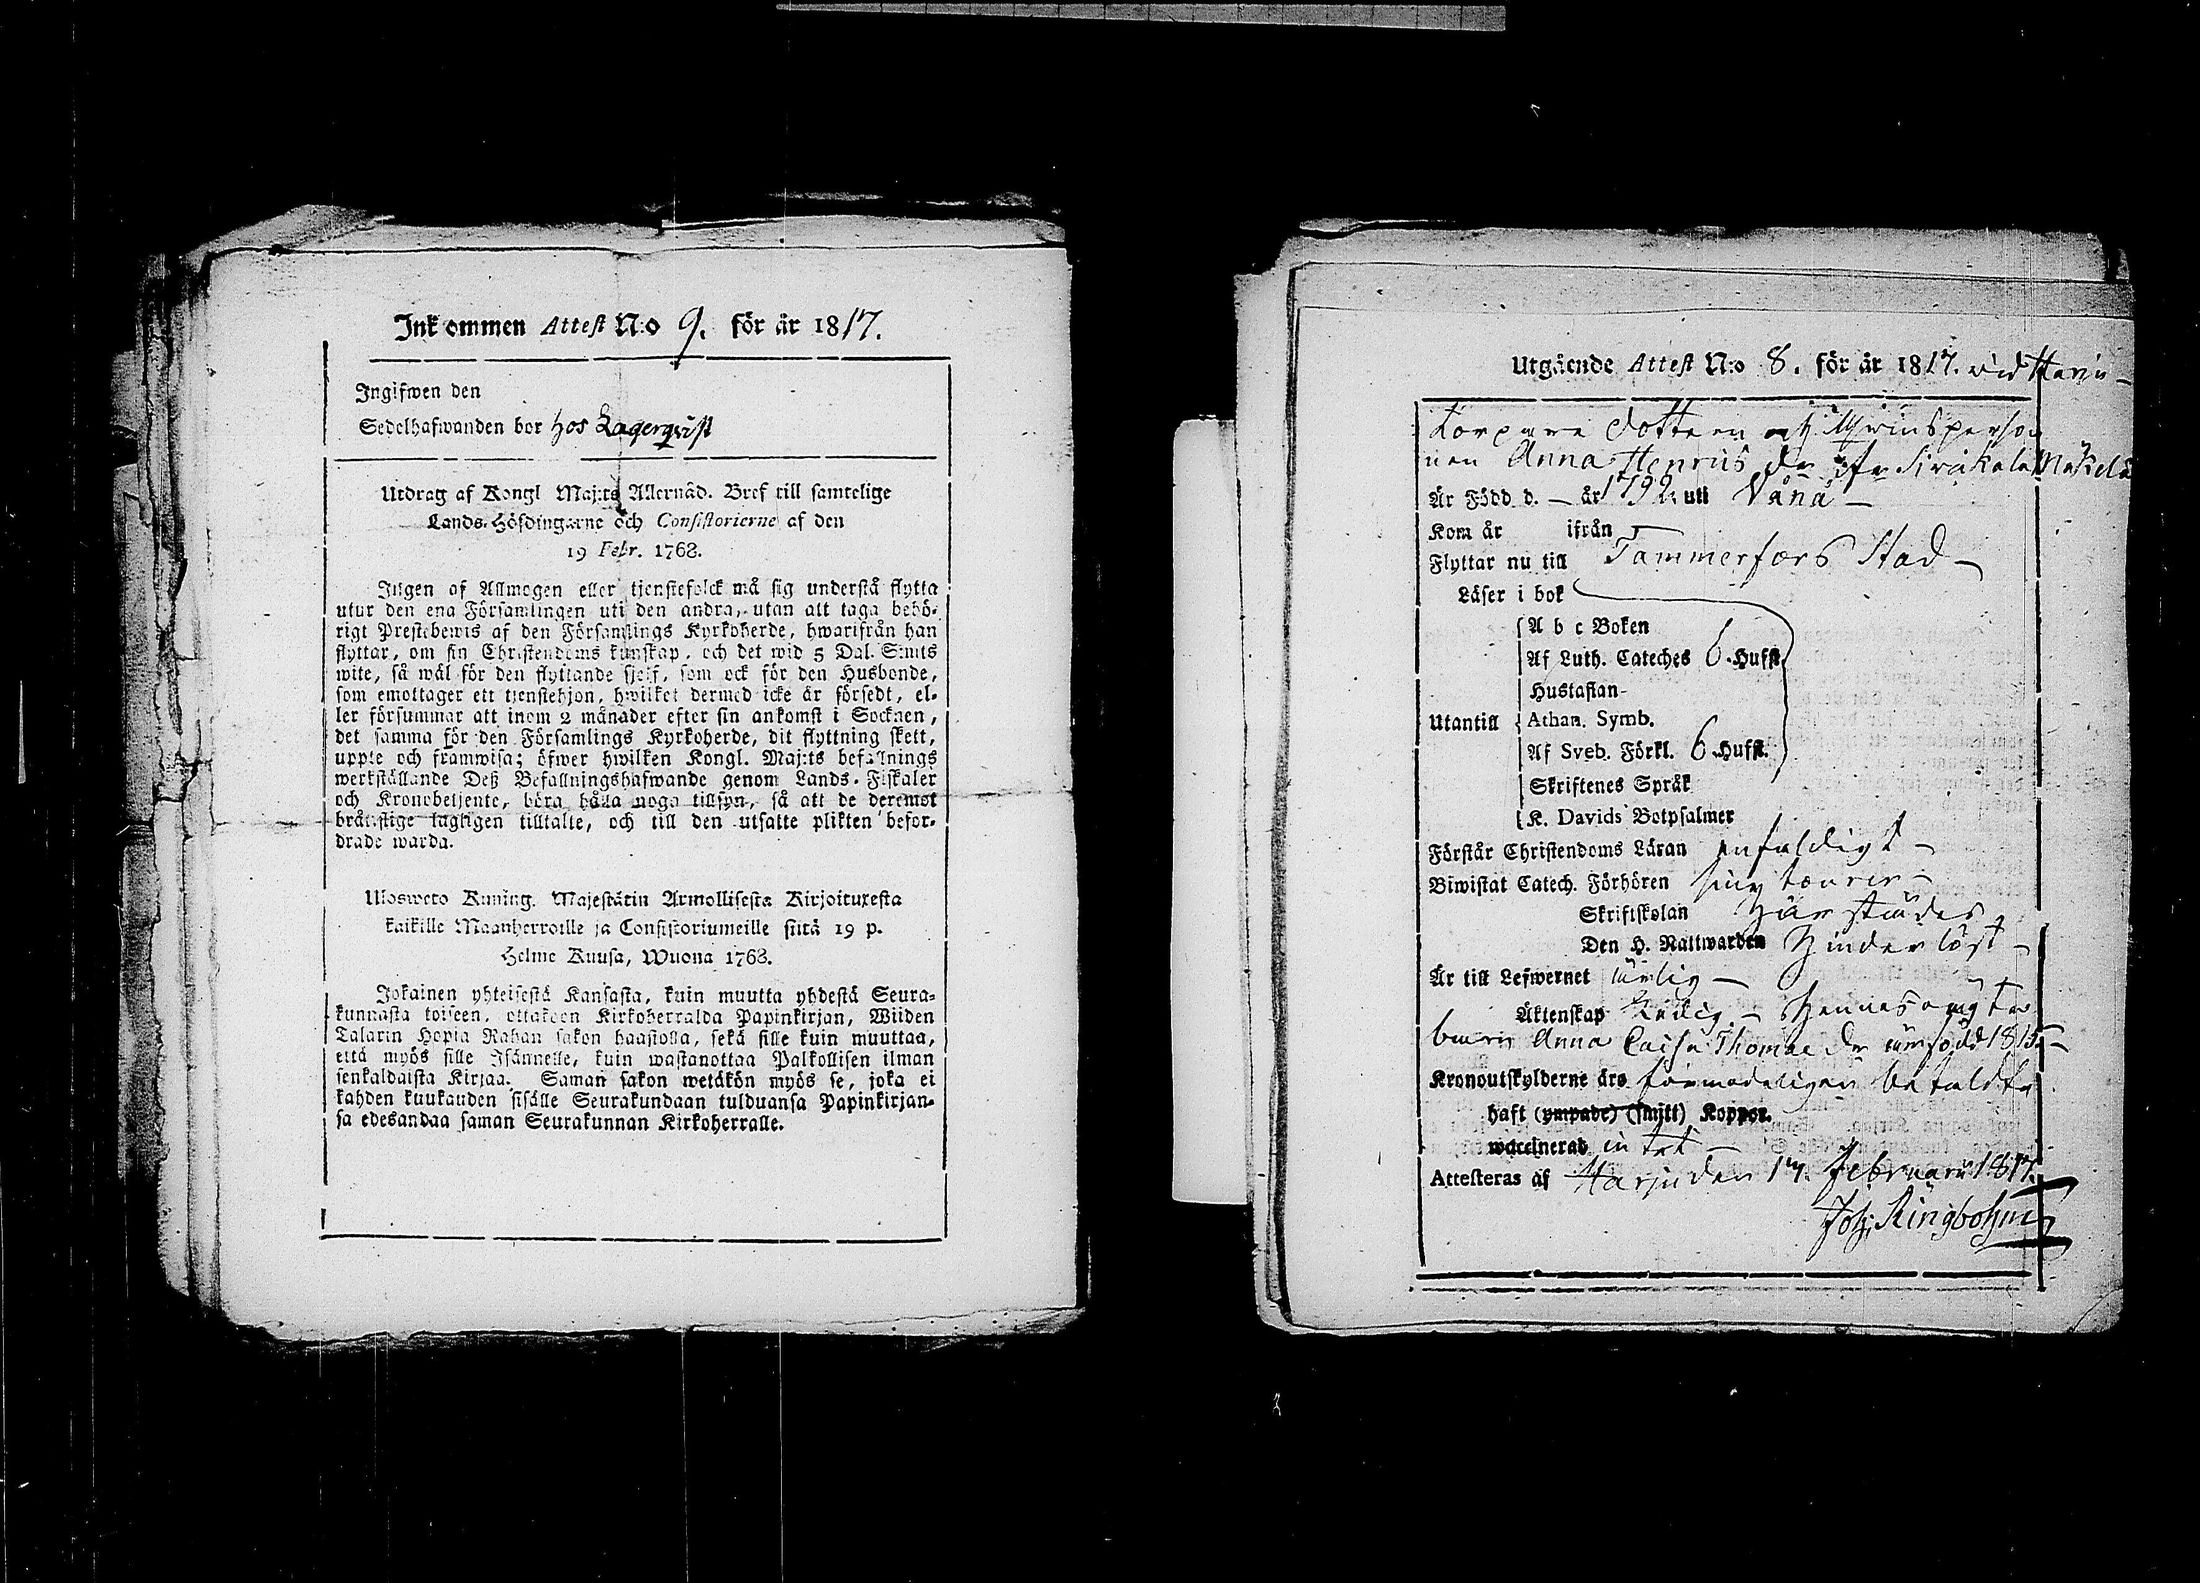 Inkommen Attest N:o 9. för år 1817.
Ingifwen den
Sedelhafwanden bor hos Lagerqvist
Utdrag af Kongl Maj:ts Allernåd. Bref till samtelige
Lands-Höfdingarne och Consistorierne af den
19 Febr. 1768.
Ingen af Allmogen eller tjenstefolck må sig understå flytta
utur den ena Församlingen uti den andra, utan att taga behö-
rigt Prestebewis af den Församlings Kyrkoherde, hwarifrån han
flyttar, om sin Christendoms kunskap, och det wid 5 Dal. S:mts
wite, så wäl för den flyttande sjelf, som ock för den Husbonde,
som emottager ett tjenstehjon, hwilket dermed icke är försedt, el-
ler försummar att inom 2 månader efter sin ankomst i Socknen,
det samma för den Församlings Kyrkoherde, dit flyttning skett,
uppte och framwisa; öfwer hwilken Kongl. Maj:ts befallnings
werkställande Deß Befallningshafwande genom Lands-Fiskaler
och Kronobetjente, böra hålla noga tillsyn, så att de deremot
bråttslige lagligen tilltalte, och till den utsatte plikten befor-
drade warda.
Ulosweto Kuning. Majestätin Armollisesta Kirjoituxesta
kaikille Maanherroille ja Consistoriumeille siitä 19 p.
Helme Kuusa, Wuona 1768.
Jokainen yhteisestä Kansasta, kuin muutta yhdestä Seura-
kunnasta toiseen, ottakoon Kirkoherralda Papinkirjan, Wiiden
Talarin Hopia Rahan sakon haastolla, sekä sille kuin muuttaa,
että myös sille Isännelle, kuin wastanottaa Palkollisen ilman
senkaldaista Kirjaa. Saman sakon wetäkön myös se, joka ei
kahden kuukauden sisälle Seurakundaan tulduansa Papinkirjan-
sa edesandaa saman Seurakunnan Kirkoherralle.
Utgående Attest N:o 8. för år 1817. wid Harju
Torpare dottern och qwinsperso
nen Anna Henrics dr ifr Sirkala Mäkelä
Är Född d. — år 1792 uti Vånå —
Kom år ifrån
Flyttar nu till Tammerfors Stad —
Läser i bok
A b c Boken
Af Luth. Cateches 6. Hufst.
Hustaflan
Utantill Athan. Symb.
Af Sveb. Förkl. 6 Hufst.
Skriftenes Språk
K. Davids Botpsalmer
Förstår Christendoms Läran enfaldigt —
Biwistat Catech. Förhören
Skriftskolan härstädes
Den H. Nattwarden Hinderlöst —
Är till Lefwernet ärlig —
Äktenskap Ledig — Hennes oägta
barn Anna Caisa Thomae dr är född 1815 —
Kronoutskylderne äro förmodeligen betaldta
haft (ympade) (smitt) Koppor.
waccinerad intet —
Attesteras af Harju den 17. Februarii 1817.
Joh: Ringbohm